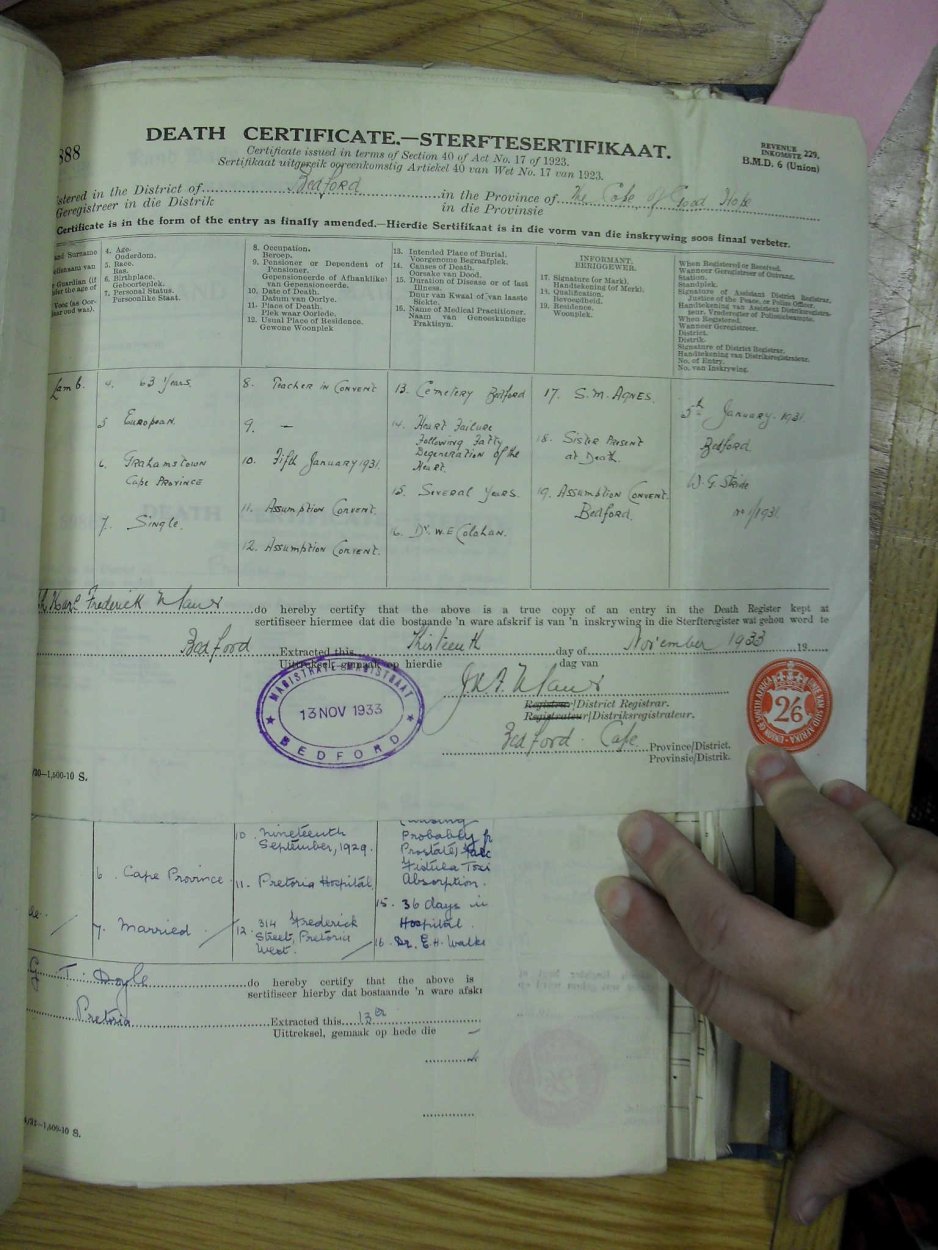 888
DEATH CERTIFICATE.—STERFTESERTIFIKAAT.
Certificate issued in terms of Section 40 of Act No. 17 of 1923.
Sertifikaat uitgereik ooreenkomstig Artiekel 40 van Wet No. 17 van 1923.
REVENUE 229,
INKOMSTE
B.M.D. 6 (Union)
stered in the District of Bedford in the Province of The Cape of Good Hope
Geregistreer in die Distrik in die Provinsie
Certificate is in the form of the entry as finally amended.—Hierdie Sertifikaat is in die vorm van die inskrywing soos finaal verbeter.
and Surname
Guardian (if
der the age of
Voog (as Oor-
aar oud was).
4. Age.
Ouderdom.
5. Race.
Ras.
6. Birthplace.
Geboorteplek.
7. Personal Status.
Persoonlike Staat.
8. Occupation.
Beroep.
9. Pensioner or Dependent of
Pensioner.
Gepensioneerde of Afhanklike
van Gepensioneerde.
10. Date of Death.
Datum van Oorlye.
11. Place of Death.
Plek waar Oorlede.
12. Usual Place of Residence.
Gewone Woonplek
13. Intended Place of Burial.
Voorgenome Begraafplek.
14. Causes of Death.
Oorsake van Dood.
15. Duration of Disease or of last
Illness.
Duur van Kwaal of van laaste
Siekte.
16. Name of Medical Practitioner.
Naam van Geneeskundige
Praktisyn.
INFORMANT.
BERIGGEWER.
17. Signature (or Mark).
Handtekening (of Merk).
18. Qualification.
Bevoegdheid.
19. Residence.
Woonplek.
When Registered or Received.
Wanneer Geregistreer of Ontvang.
Station.
Standplek.
Signature of Assistant District Registrar,
Justice of the Peace, or Police Officer.
Handtekening van Assistent Distriksregistra-
teur, Vrederegter of Polisiebeampte.
When Registered.
Wanneer Geregistreer.
District.
Distrik.
Signature of District Registrar.
Handtekening van Distriksregistrateur.
No. of Entry.
No. van Inskrywing.
Lamb.
4. 63 Years.
5 European.
6. Grahamstown
Cape Province
7. Single.
8. Teacher in Convent
9. —
10. Fifth January 1931.
11. Assumption Convent.
12. Assumption Convent.
13. Cemetery Bedford
14. Heart Failure
Following Fatty
Degeneration of the
Heart.
15. Several Years.
16. Dr. W.E Colohan.
17. S.M. Agnes.
18. Sister Present
at Death.
19. Assumption Convent.
Bedford.
5th January 1931.
Bedford.
W.G. Stride
No 1/1931.
Karl Frederick do hereby certify that the above is a true copy of an entry in the Death Register kept at
sertifiseer hiermee dat die bostaande 'n ware afskrif is van 'n inskrywing in die Sterfteregister wat gehou word te
Bedford Extracted this Thirteenth day of November 1933 19
Uittreksel, gemaak op hierdie dag van
MAGISTRATE - MAGISTRAAT
13 NOV 1933
BEDFORD
Registrar/District Registrar.
Registrateur/Distriksregistrateur.
Bedford. Cape Province/District.
Provinsie/Distrik.
UNION OF SOUTH AFRICA · UNIE VAN SUID-AFRIKA
2/6
/30—1,500-10 S.
6. Cape Province
7. Married
10. Nineteenth
September, 1929.
11. Pretoria Hospital,
12. 314 Frederick
Street, Pretoria
West.
Probably
Prostate)
Fistula Toxi
Absorption.
15. 36 days in
Hospital.
16. Dr. E.H. Walke
G T. Doyle do hereby certify that the above is
sertifiseer hierby dat bostaande 'n ware afskr
Pretoria Extracted this 13th
Uittreksel, gemaak op hede die
1,500-10 S.